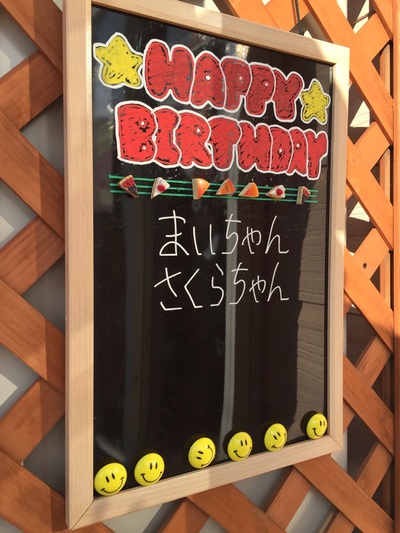 HAPPY
BIRTHDAY
まいちゃん
さくらちゃん